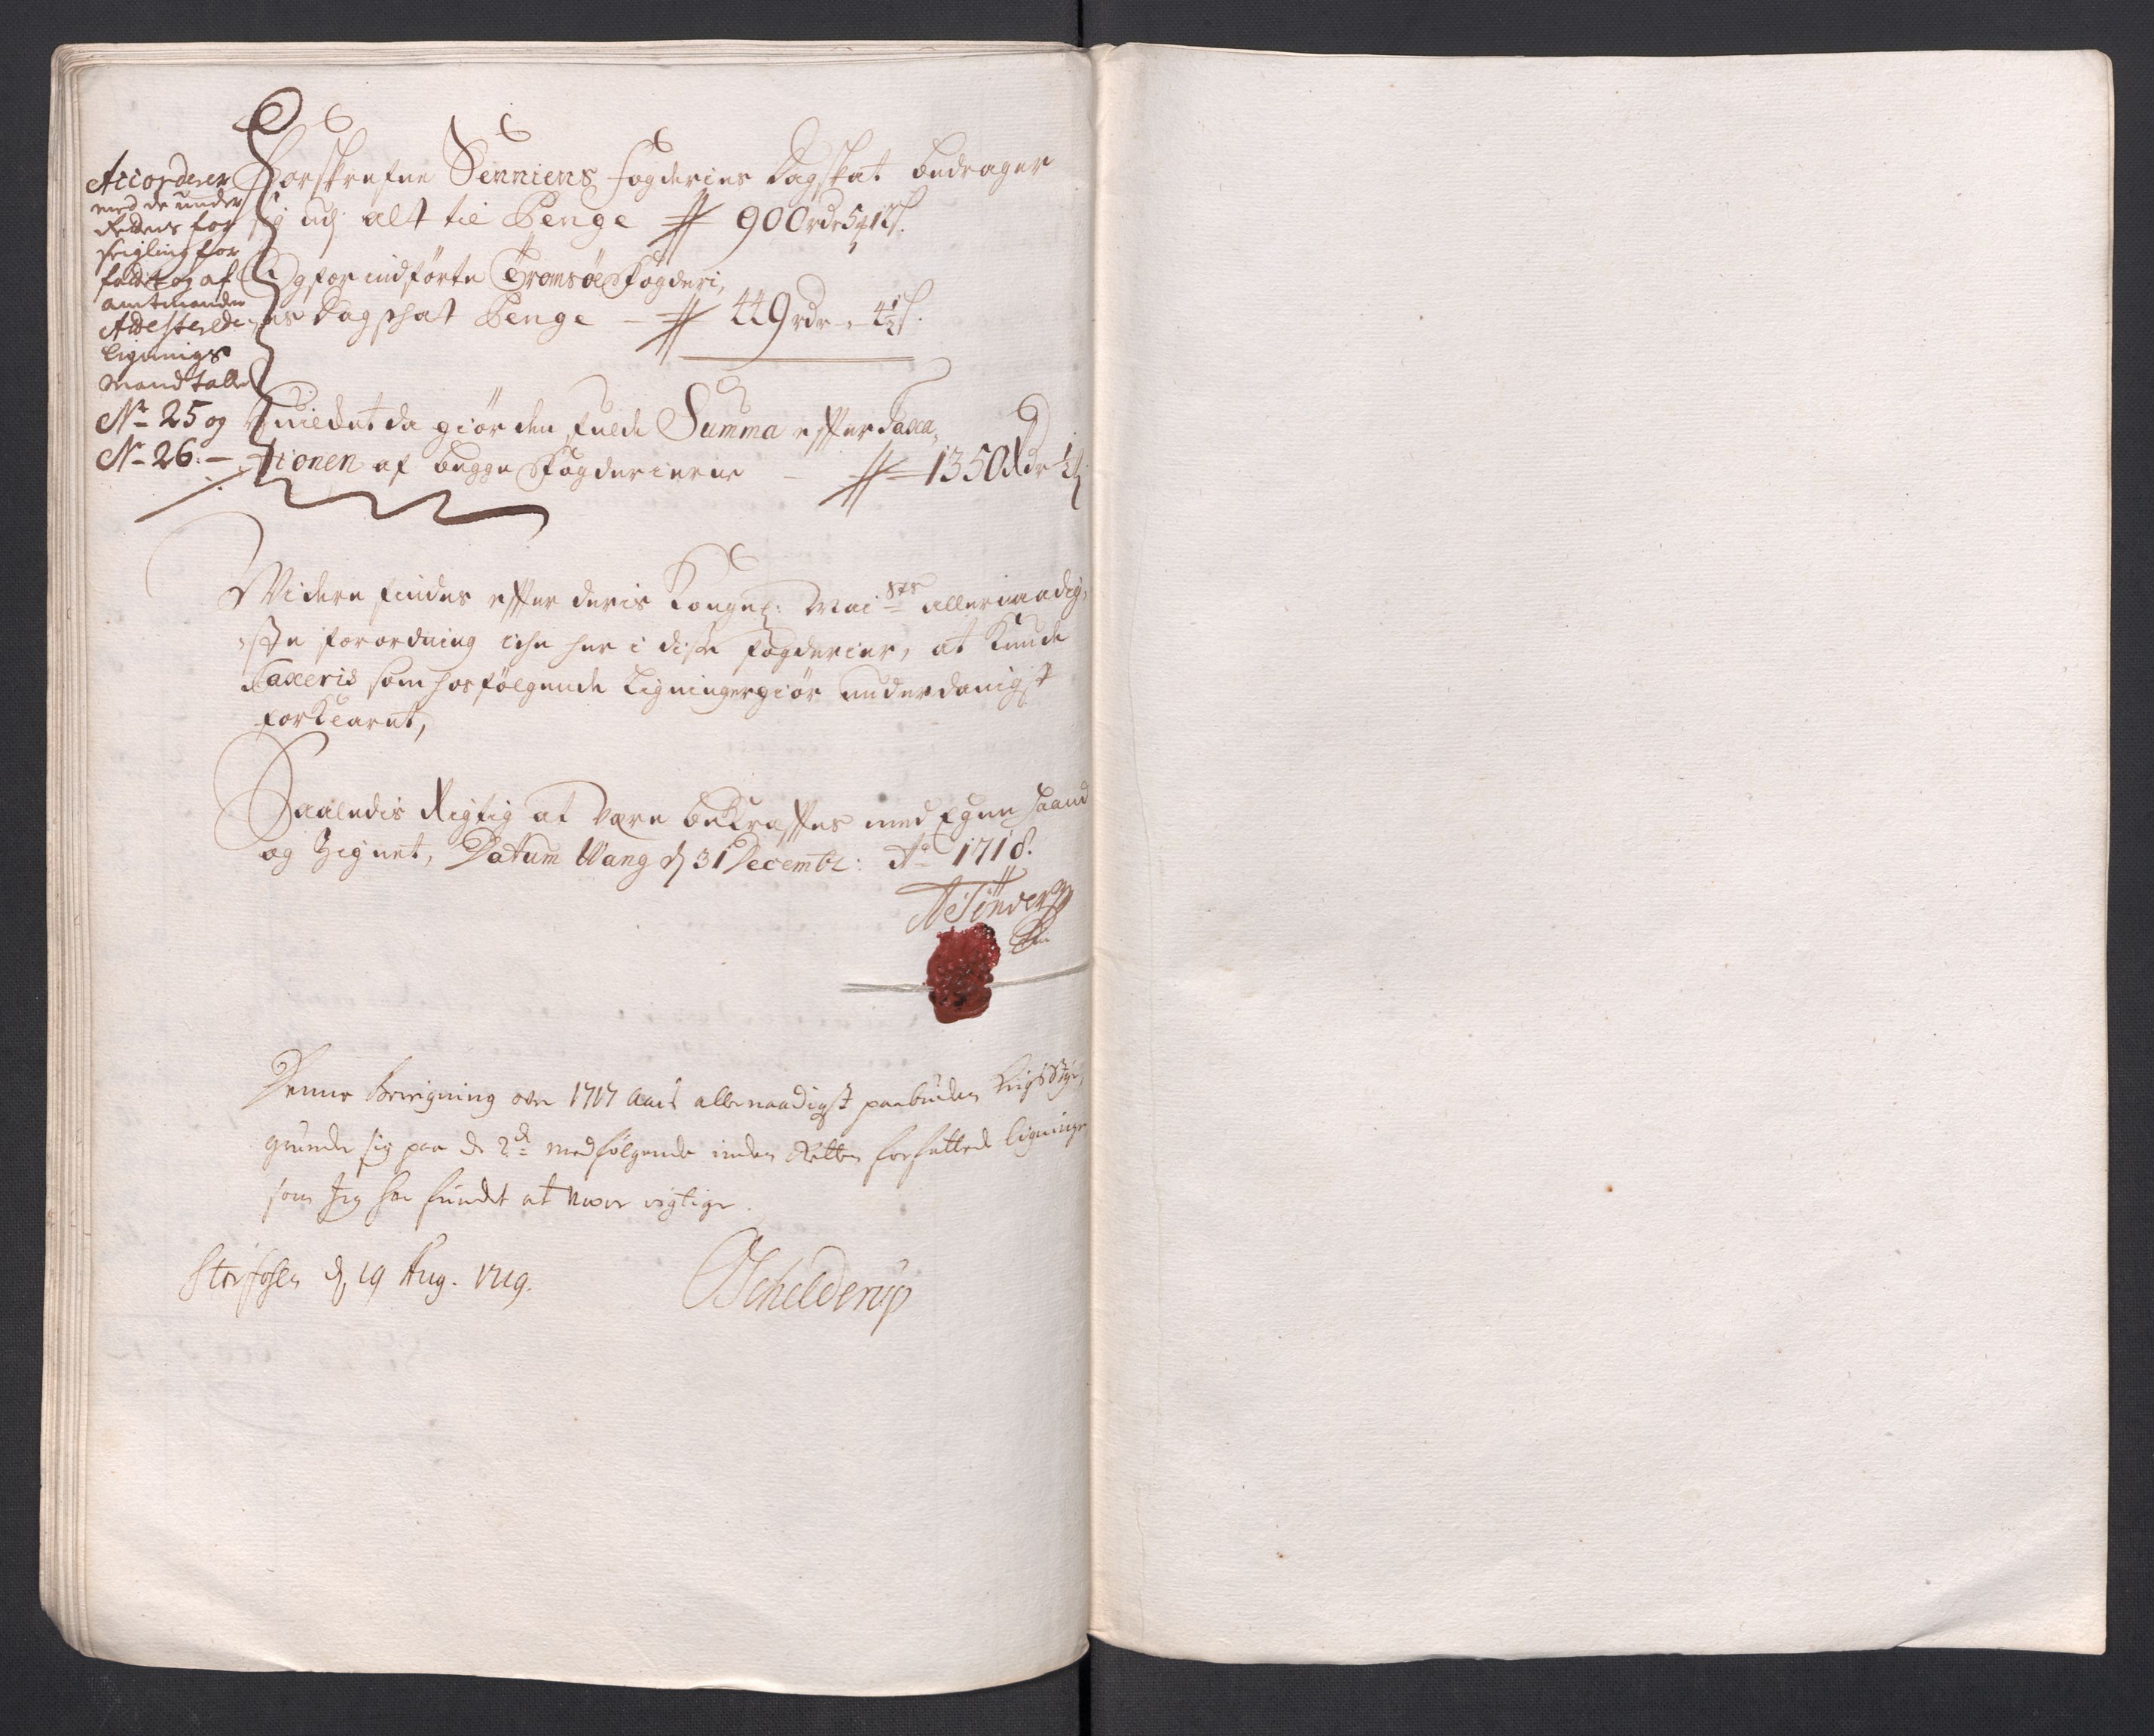 Accorderer
med de under
Rettens for
seigling for
fattet og af
amtmanden
Attesterede
Lignings
Mandtaller
No 25 og
No 26:-
Forskrefne Senniens fogderies Dagskat bedrager
sig udj alt til Penge # 900 rdr 5 ꝑ 12 s.
Og for indførte Tromsøe Fogderi,
es Dagskat Penge - # 449 rdr - 4½ s.
Huilket da giør den fulde Summa effter Taxa,
tionen af begge Fogderierne - # 1350 Rdr ½ s
Widere findes effter deris Kongel: Mai sts allernaadig,
ste forordning iche her i disse fogderier, at kunde
Taxeris som hosfølgende Ligninger giør underdanigst
forklaret,
Saaledis Rigtig at være bekræfftes med Egen haand
og Zignet, Datum Wang d 31 Decembr: Ao 1718.
Tønder
Denne Beregning over 1717 Aars allernaadigst paabuden
grunder sig paa de 2de medfølgende inden Retten forfattede Ligninger
som Jeg har fundet at være rigtige.
Storfosen d. 19 Aug. 1719.
Schelderup